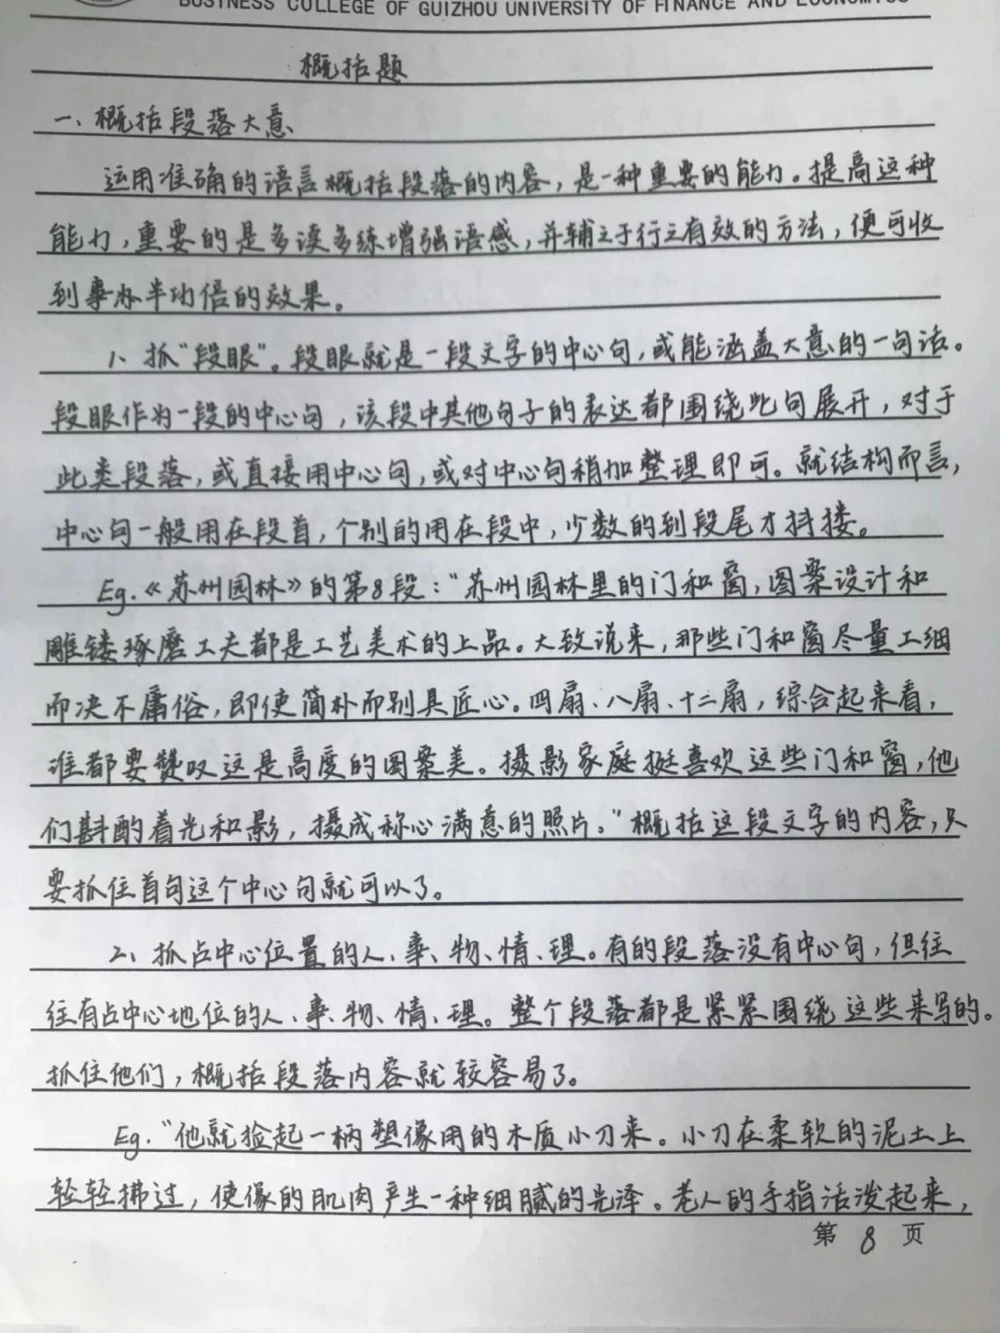 BUSINESS COLLEGE OF GUIZHOU UNIVERSITY OF FINANCE AND ECONOMICS
概括题
一、概括段落大意
运用准确的语言概括段落的内容，是一种重要的能力。提高这种
能力，重要的是多读多练增强语感，并辅之于行之有效的方法，便可收
到事办半功倍的效果。
1、抓“段眼”。段眼就是一段文字的中心句，或能涵盖大意的一句话。
段眼作为一段的中心句，该段中其他句子的表达都围绕此句展开，对于
此类段落，或直接用中心句，或对中心句稍加整理即可。就结构而言，
中心句一般用在段首，个别的用在段中，少数的到段尾才抖搂。
Eg.《苏州园林》的第8段：“苏州园林里的门和窗，图案设计和
雕镂琢磨工夫都是工艺美术的上品。大致说来，那些门和窗尽量工细
而决不庸俗，即使简朴而别具匠心。四扇、八扇、十二扇，综合起来看，
谁都要赞叹这是高度的图案美。摄影家庭挺喜欢这些门和窗，他
们斟酌着光和影，摄成称心满意的照片。”概括这段文字的内容，只
要抓住首句这个中心句就可以了。
2、抓占中心位置的人、事、物、情、理。有的段落没有中心句，但往
往有占中心地位的人、事、物、情、理。整个段落都是紧紧围绕这些来写的。
抓住他们，概括段落内容就较容易了。
Eg.“他就捡起一柄塑像用的木质小刀来。小刀在柔软的泥土上
轻轻拂过，使像的肌肉产生一种细腻的光泽。老人的手指活泼起来，
第 8 页